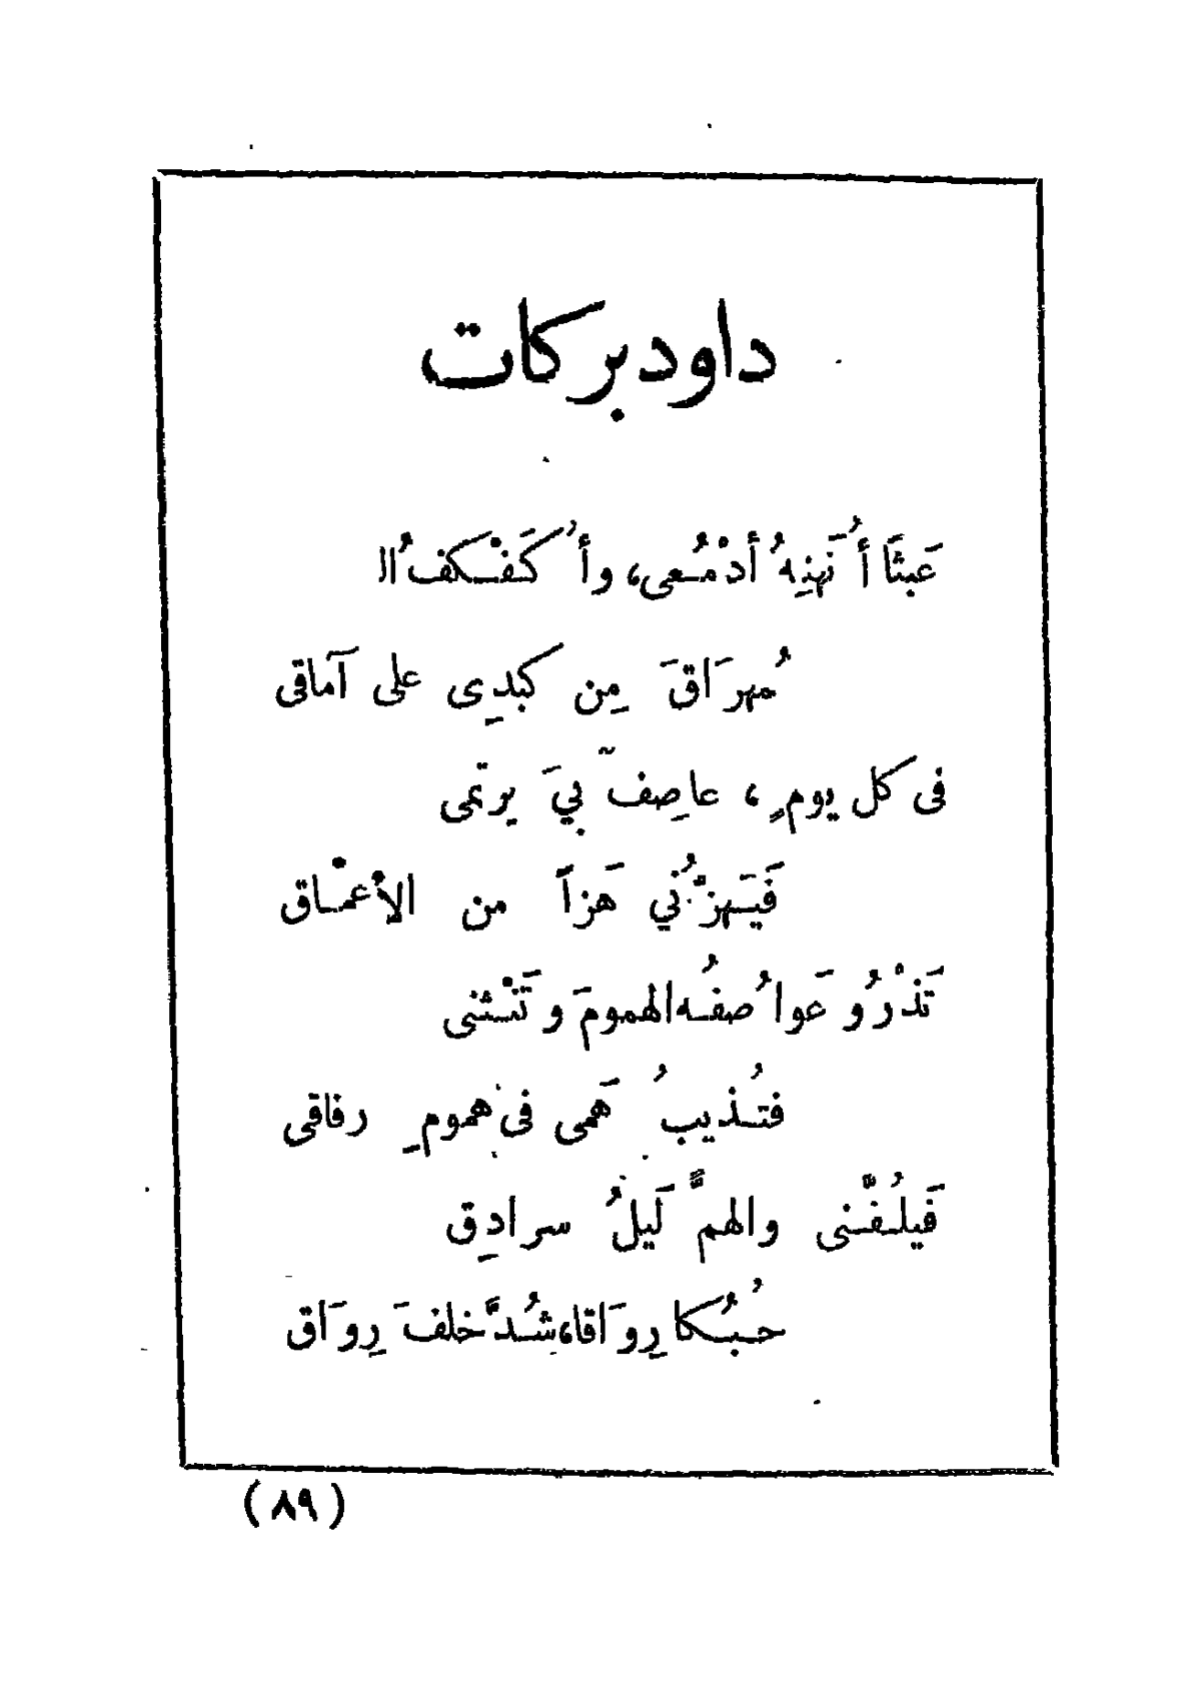 داود بركات
عَبثًا أُنَهنِهُ أدْمُعى، وأُكَفْكفُ الـ
مُهرَاقَ مِن كبدِى على آماقى
فى كل يومٍ، عاصِفٌ بيَ يرتمى
فَيَهزُّني هَزاً من الأعْمْاق
تَذْرُو عَواصُفُه الهمومَ وتَنْثنى
فتُذيبُ هَمى فى همومِ رفاقى
فَيلُفّنى والهمَّ لَيلُ سرادِق
حُبُكا رِوَاقا، شُدَّ خلفَ رِوَاق
(٨٩)